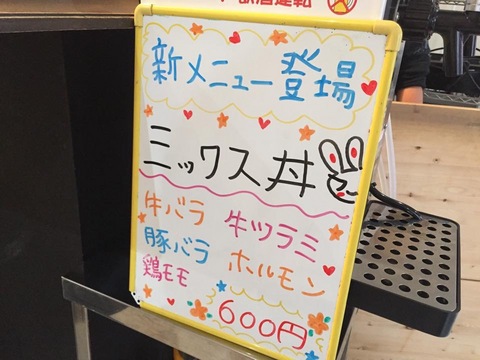 新メニュー登場
ミックス丼
牛バラ 牛ツラミ
豚バラ ホルモン
鶏モモ
600円